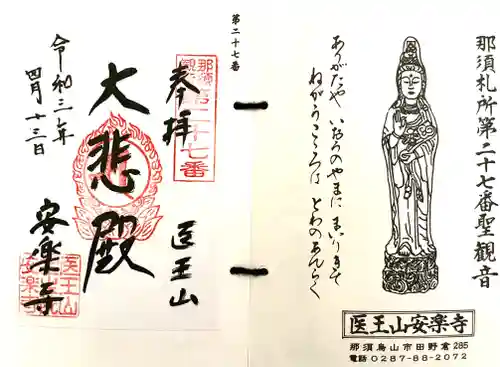 那須札所第二十七番聖観音
ありがたや いおうのやまに まいりきて
ねがうこころは とわのあんらく
医王山安楽寺
那須烏山市田野倉285
電話0287-88-2072
第二十七番
奉拝
医王山
大悲殿
安楽寺
令和三年
四月十三日
那須
観音
第二十七番
医王山
安楽寺